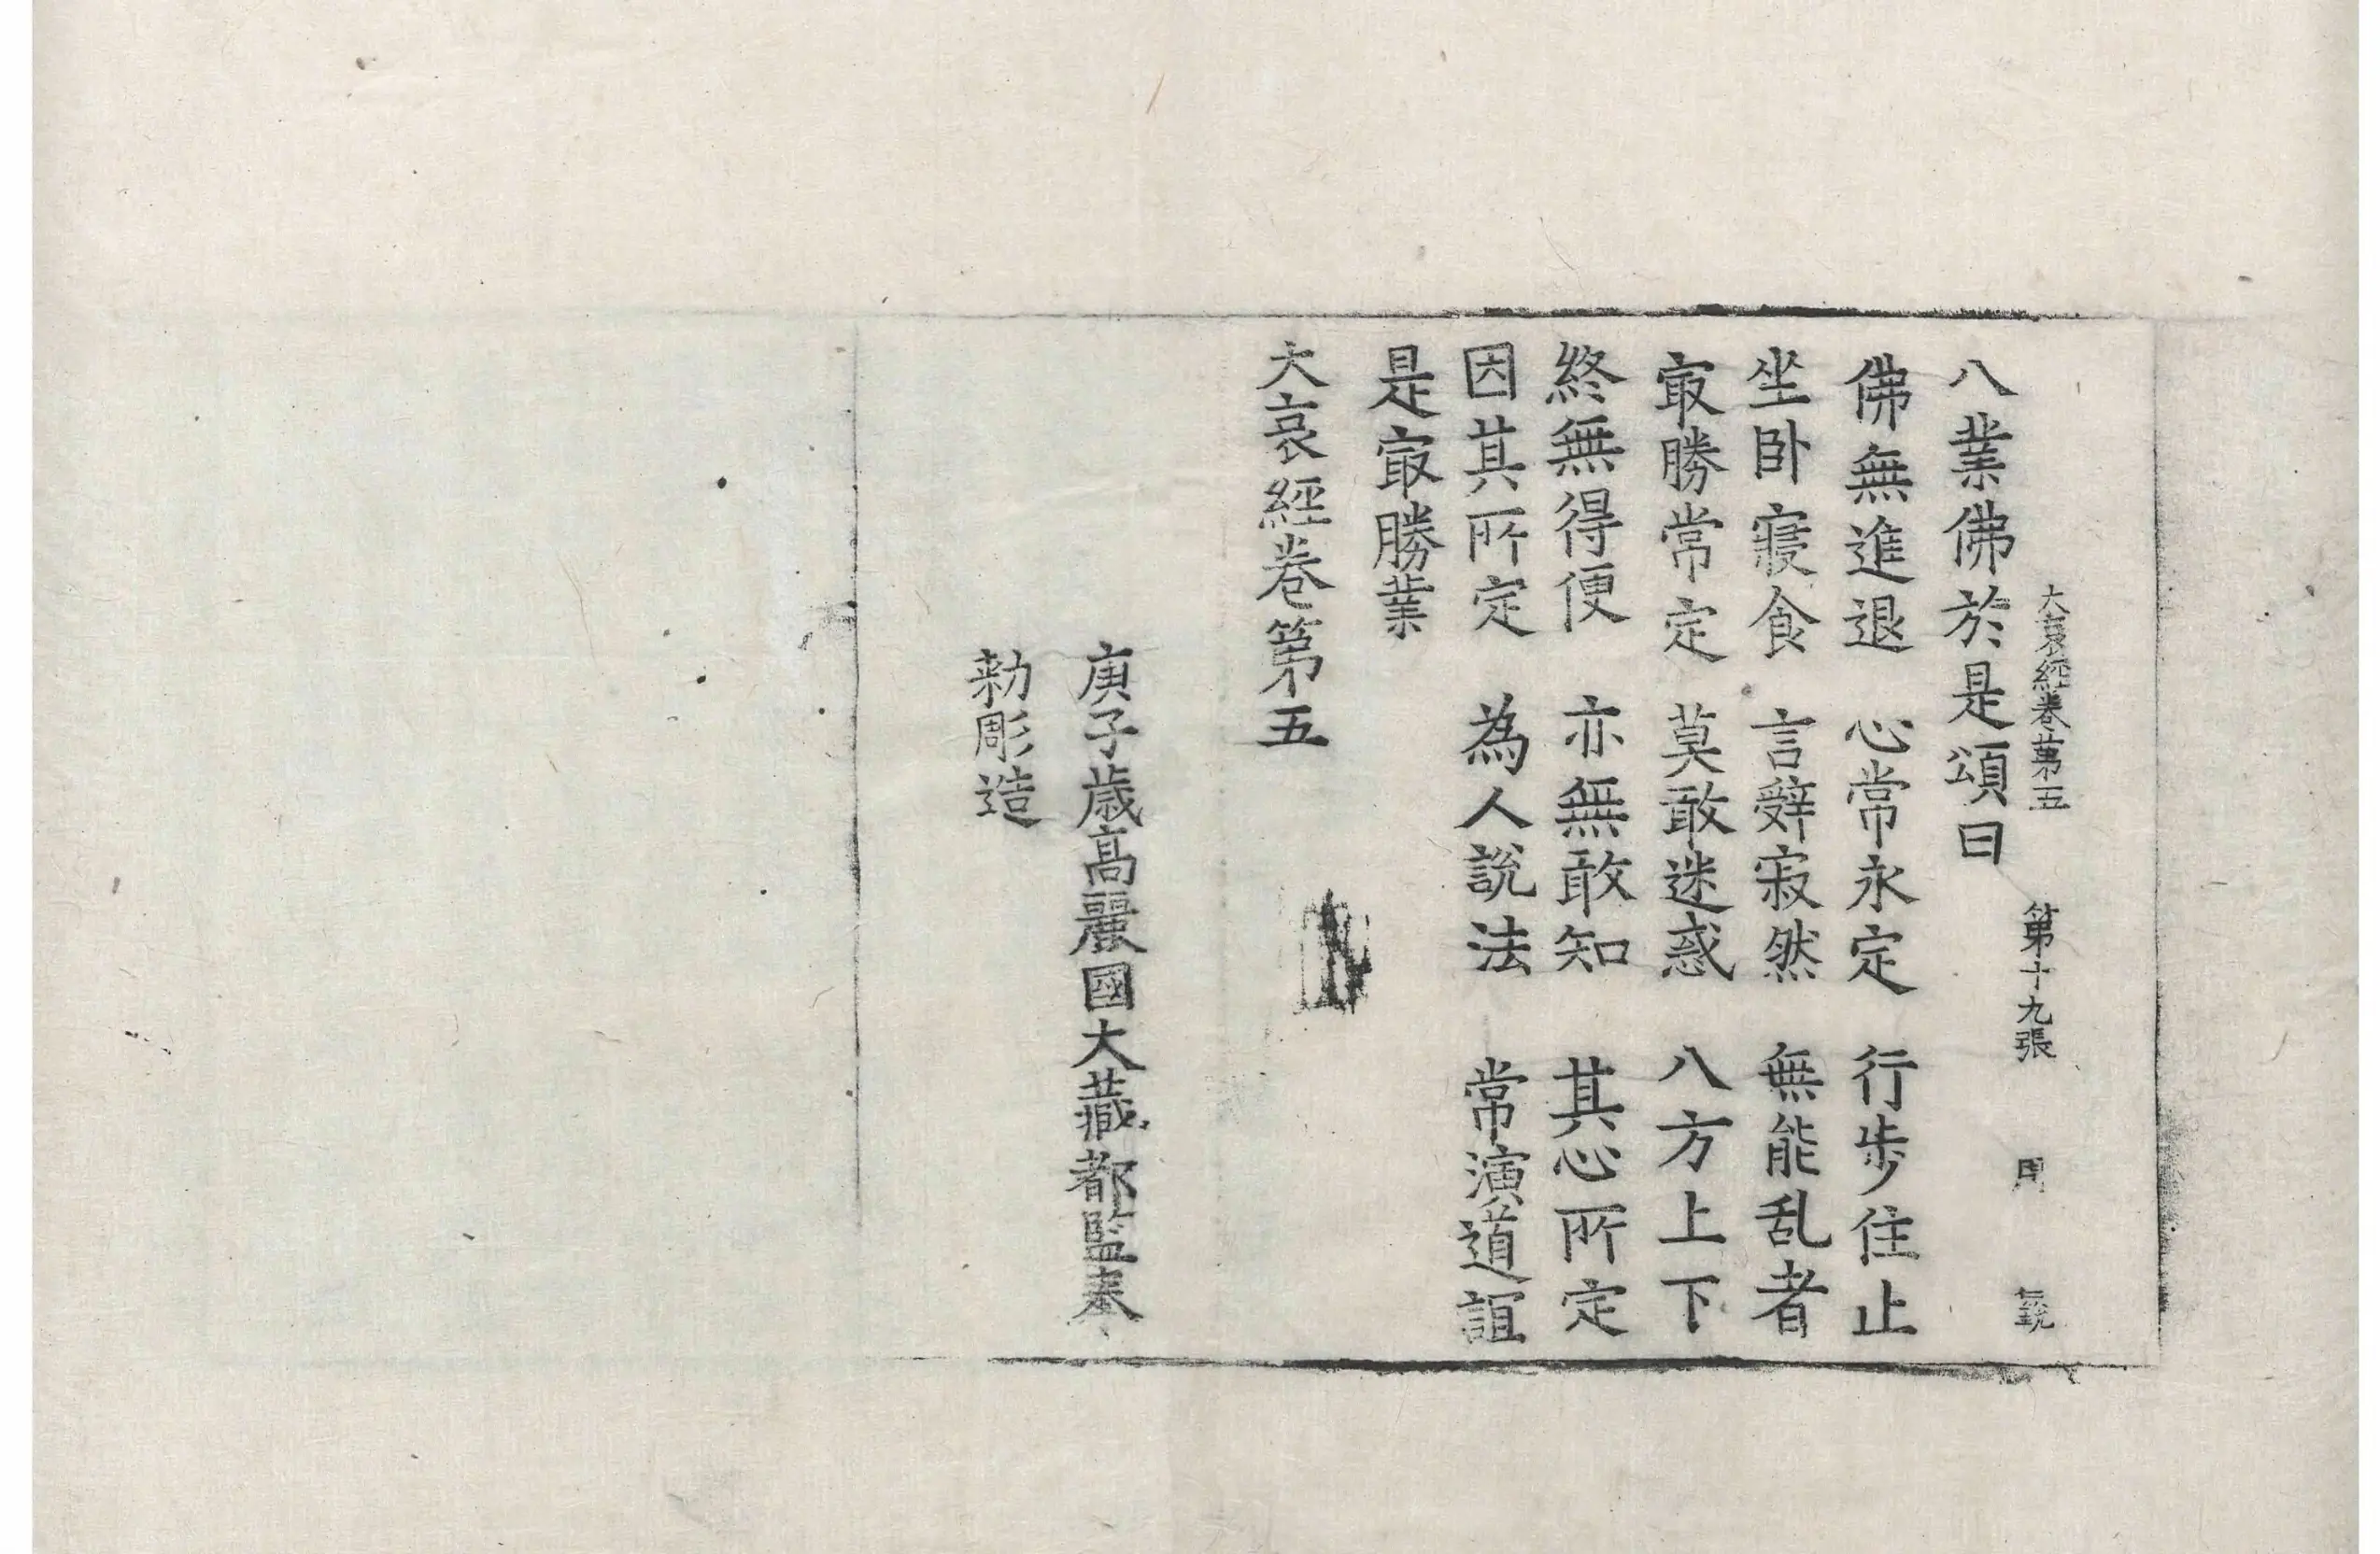 大哀經卷第五 第十九張 周
八業佛於是頌曰
佛無進退 心常永定 行步住止
坐卧寢食 言辭寂然 無能乱者
㝡勝常定 莫敢迷惑 八方上下
終無得便 亦無敢知 其心所定
因其所定 為人說法 常演道誼
是㝡勝業
大哀經卷第五
庚子歲高麗國大藏都監奉
勑彫造